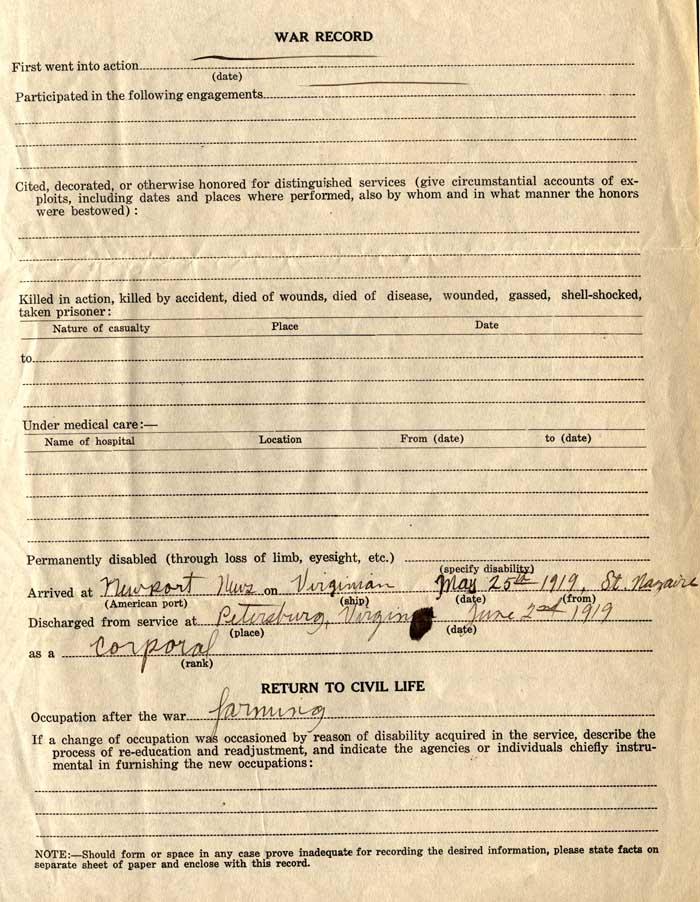 WAR RECORD
First went into action
(date)
Participated in the following engagements
Cited, decorated, or otherwise honored for distinguished services (give circumstantial accounts of ex-
ploits, including dates and places where performed, also by whom and in what manner the honors
were bestowed) :
Killed in action, killed by accident, died of wounds, died of disease, wounded, gassed, shell-shocked,
taken prisoner:
Nature of casualty Place Date
to
Under medical care:—
Name of hospital Location From (date) to (date)
Permanently disabled (through loss of limb, eyesight, etc.)
(specify disability)
Arrived at Newport News on Virginian May 25th 1919, St. Nazaire
(American port) (ship) (date) (from)
Discharged from service at Petersburg, Virginia June 2nd 1919
(place) (date)
as a corporal
(rank)
RETURN TO CIVIL LIFE
Occupation after the war farming
If a change of occupation was occasioned by reason of disability acquired in the service, describe the
process of re-education and readjustment, and indicate the agencies or individuals chiefly instru-
mental in furnishing the new occupations:
NOTE:—Should form or space in any case prove inadequate for recording the desired information, please state facts on
separate sheet of paper and enclose with this record.